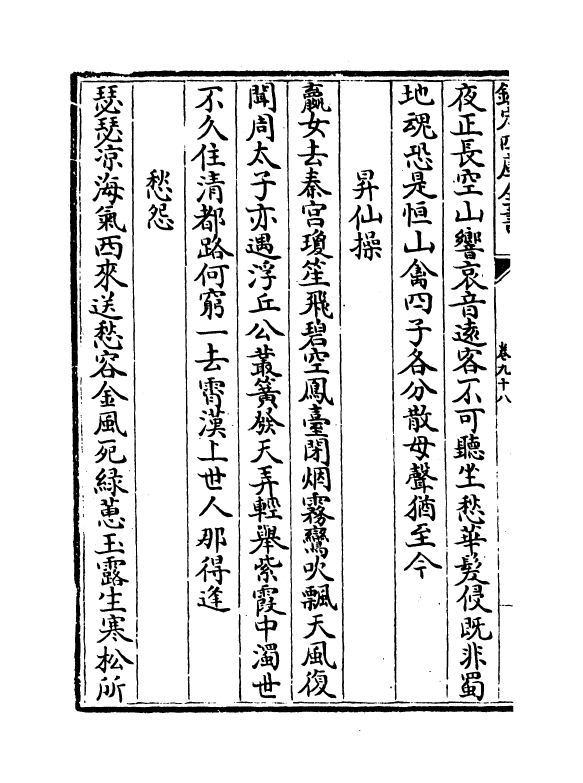 欽定四庫全書
卷九十八
夜正長空山響哀音遠客不可聽坐愁華髮侵既非蜀
地魂恐是恒山禽四子各分散母聲猶至今
昇仙操
嬴女去秦宫瓊笙飛碧空鳳臺閉烟霧鸞吹飄天風復
聞周太子亦遇浮丘公叢簧發天弄輕舉紫霞中濁世
不久住清都路何窮一去霄漢上世人那得逢
愁怨
瑟瑟凉海氣西來送愁容金風死緑蕙玉露生寒松所